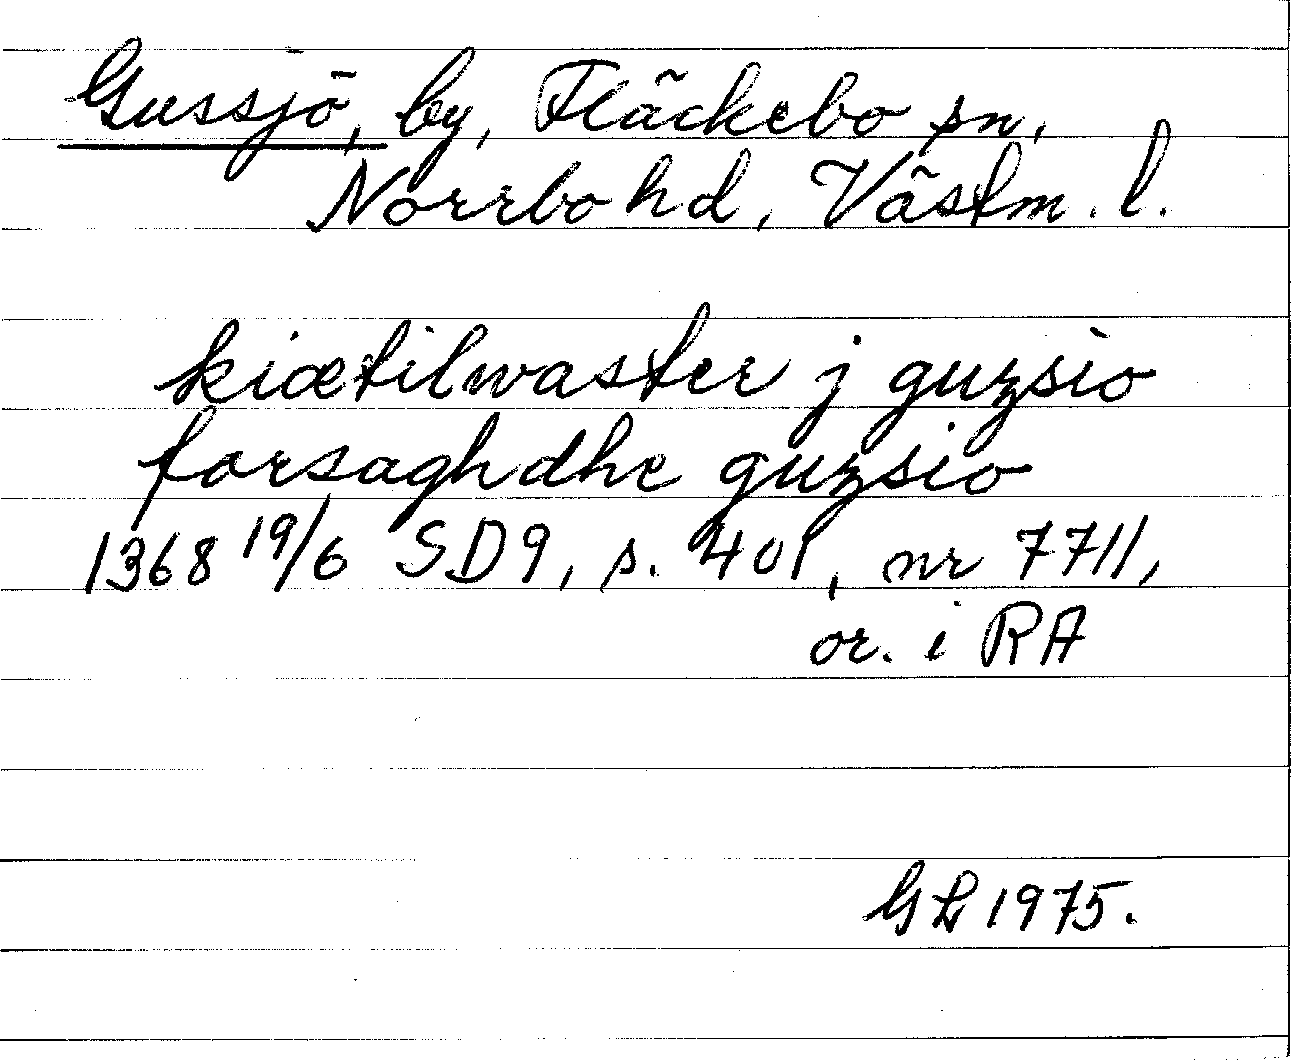 Gussjö, by, Fläckebo sn,
Norrbo hd, Västm. l.
kiætilwaster j guzsio
forsaghdhe guzsio
1368 19/6 SD9, s. 401, nr 7711,
or. i RA
GL 1975.